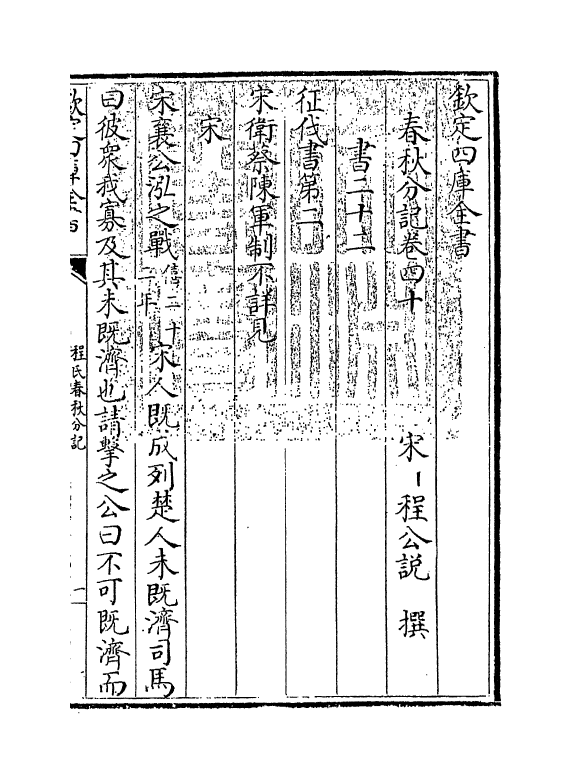 欽定四庫全書
春秋分記卷四十　宋　程公說　撰
書二十二
征伐書第二
宋衛蔡陳軍制不詳見
宋
宋襄公泓之戰僖二十二年宋人既成列楚人未既濟司馬
曰彼衆我寡及其未既濟也請擊之公曰不可既濟而
欽定四庫全書
程氏春秋分記